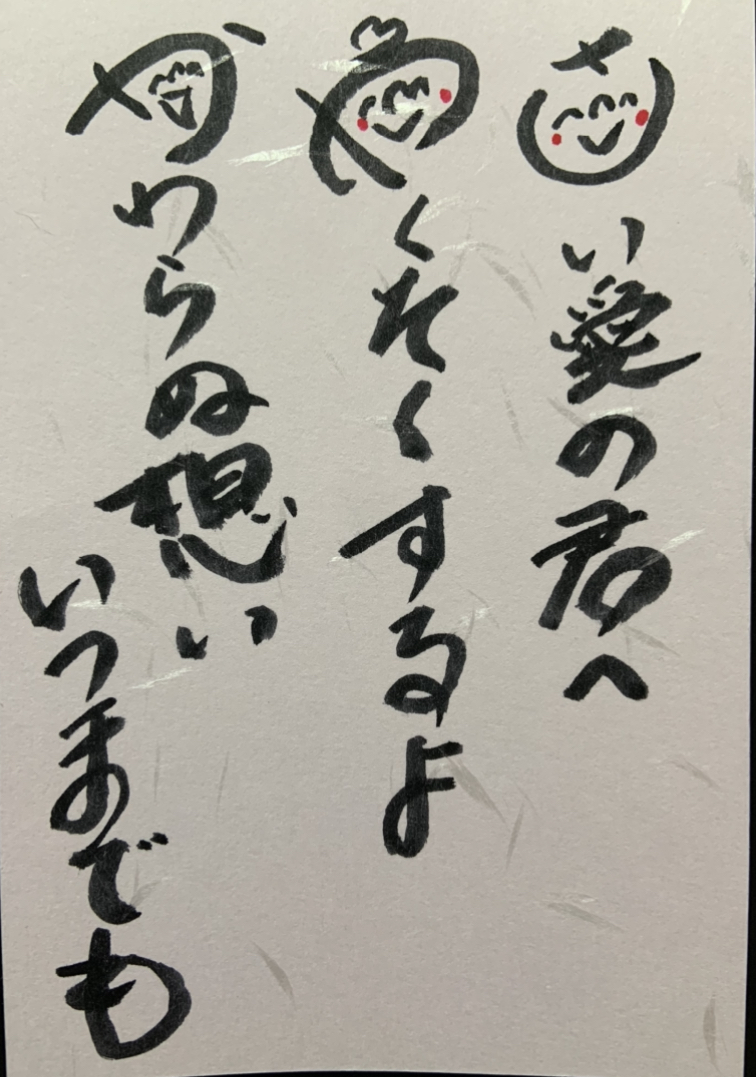 さい愛の君へ
やくそくするよ
かわらぬ想い
いつまでも